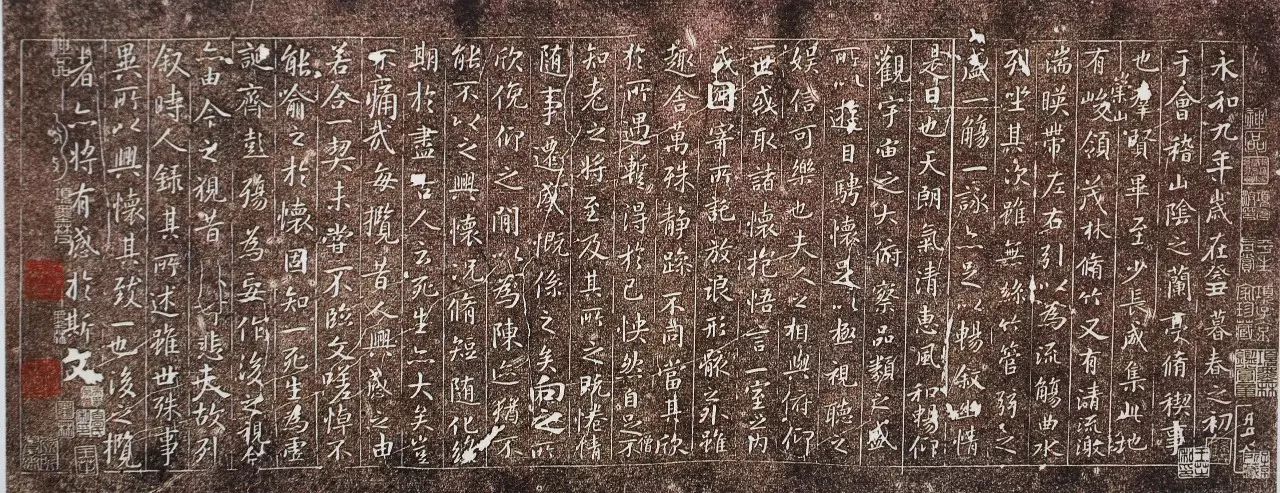 永和九年歲在癸丑暮春之初
于會稽山陰之蘭亭脩稧事
也羣賢畢至少長咸集此地
崇山
有峻領茂林脩竹又有清流激
湍暎帶左右引以為流觴曲水
列坐其次雖無絲竹管弦之
盛一觴一詠亦足以暢敘幽情
是日也天朗氣清惠風和暢仰
觀宇宙之大俯察品類之盛
所以遊目騁懷足以極視聽之
娛信可樂也夫人之相與俯仰
一世或取諸懷抱悟言一室之內
或因寄所託放浪形骸之外雖
趣舍萬殊靜躁不同當其欣
於所遇暫得於己怏然自足不
僧
知老之將至及其所之既惓情
随事遷感慨係之矣向之所
欣俛仰之閒以為陳迹猶不
能不以之興懷況脩短随化終
期於盡古人云死生亦大矣豈
不痛哉每攬昔人興感之由
若合一契未嘗不臨文嗟悼不
能喻之於懷固知一死生為虛
誕齊彭殤為妄作後之視今
亦由今之視昔悲夫故列
敘時人錄其所述雖世殊事
異所以興懷其致一也後之攬
者亦將有感於斯文